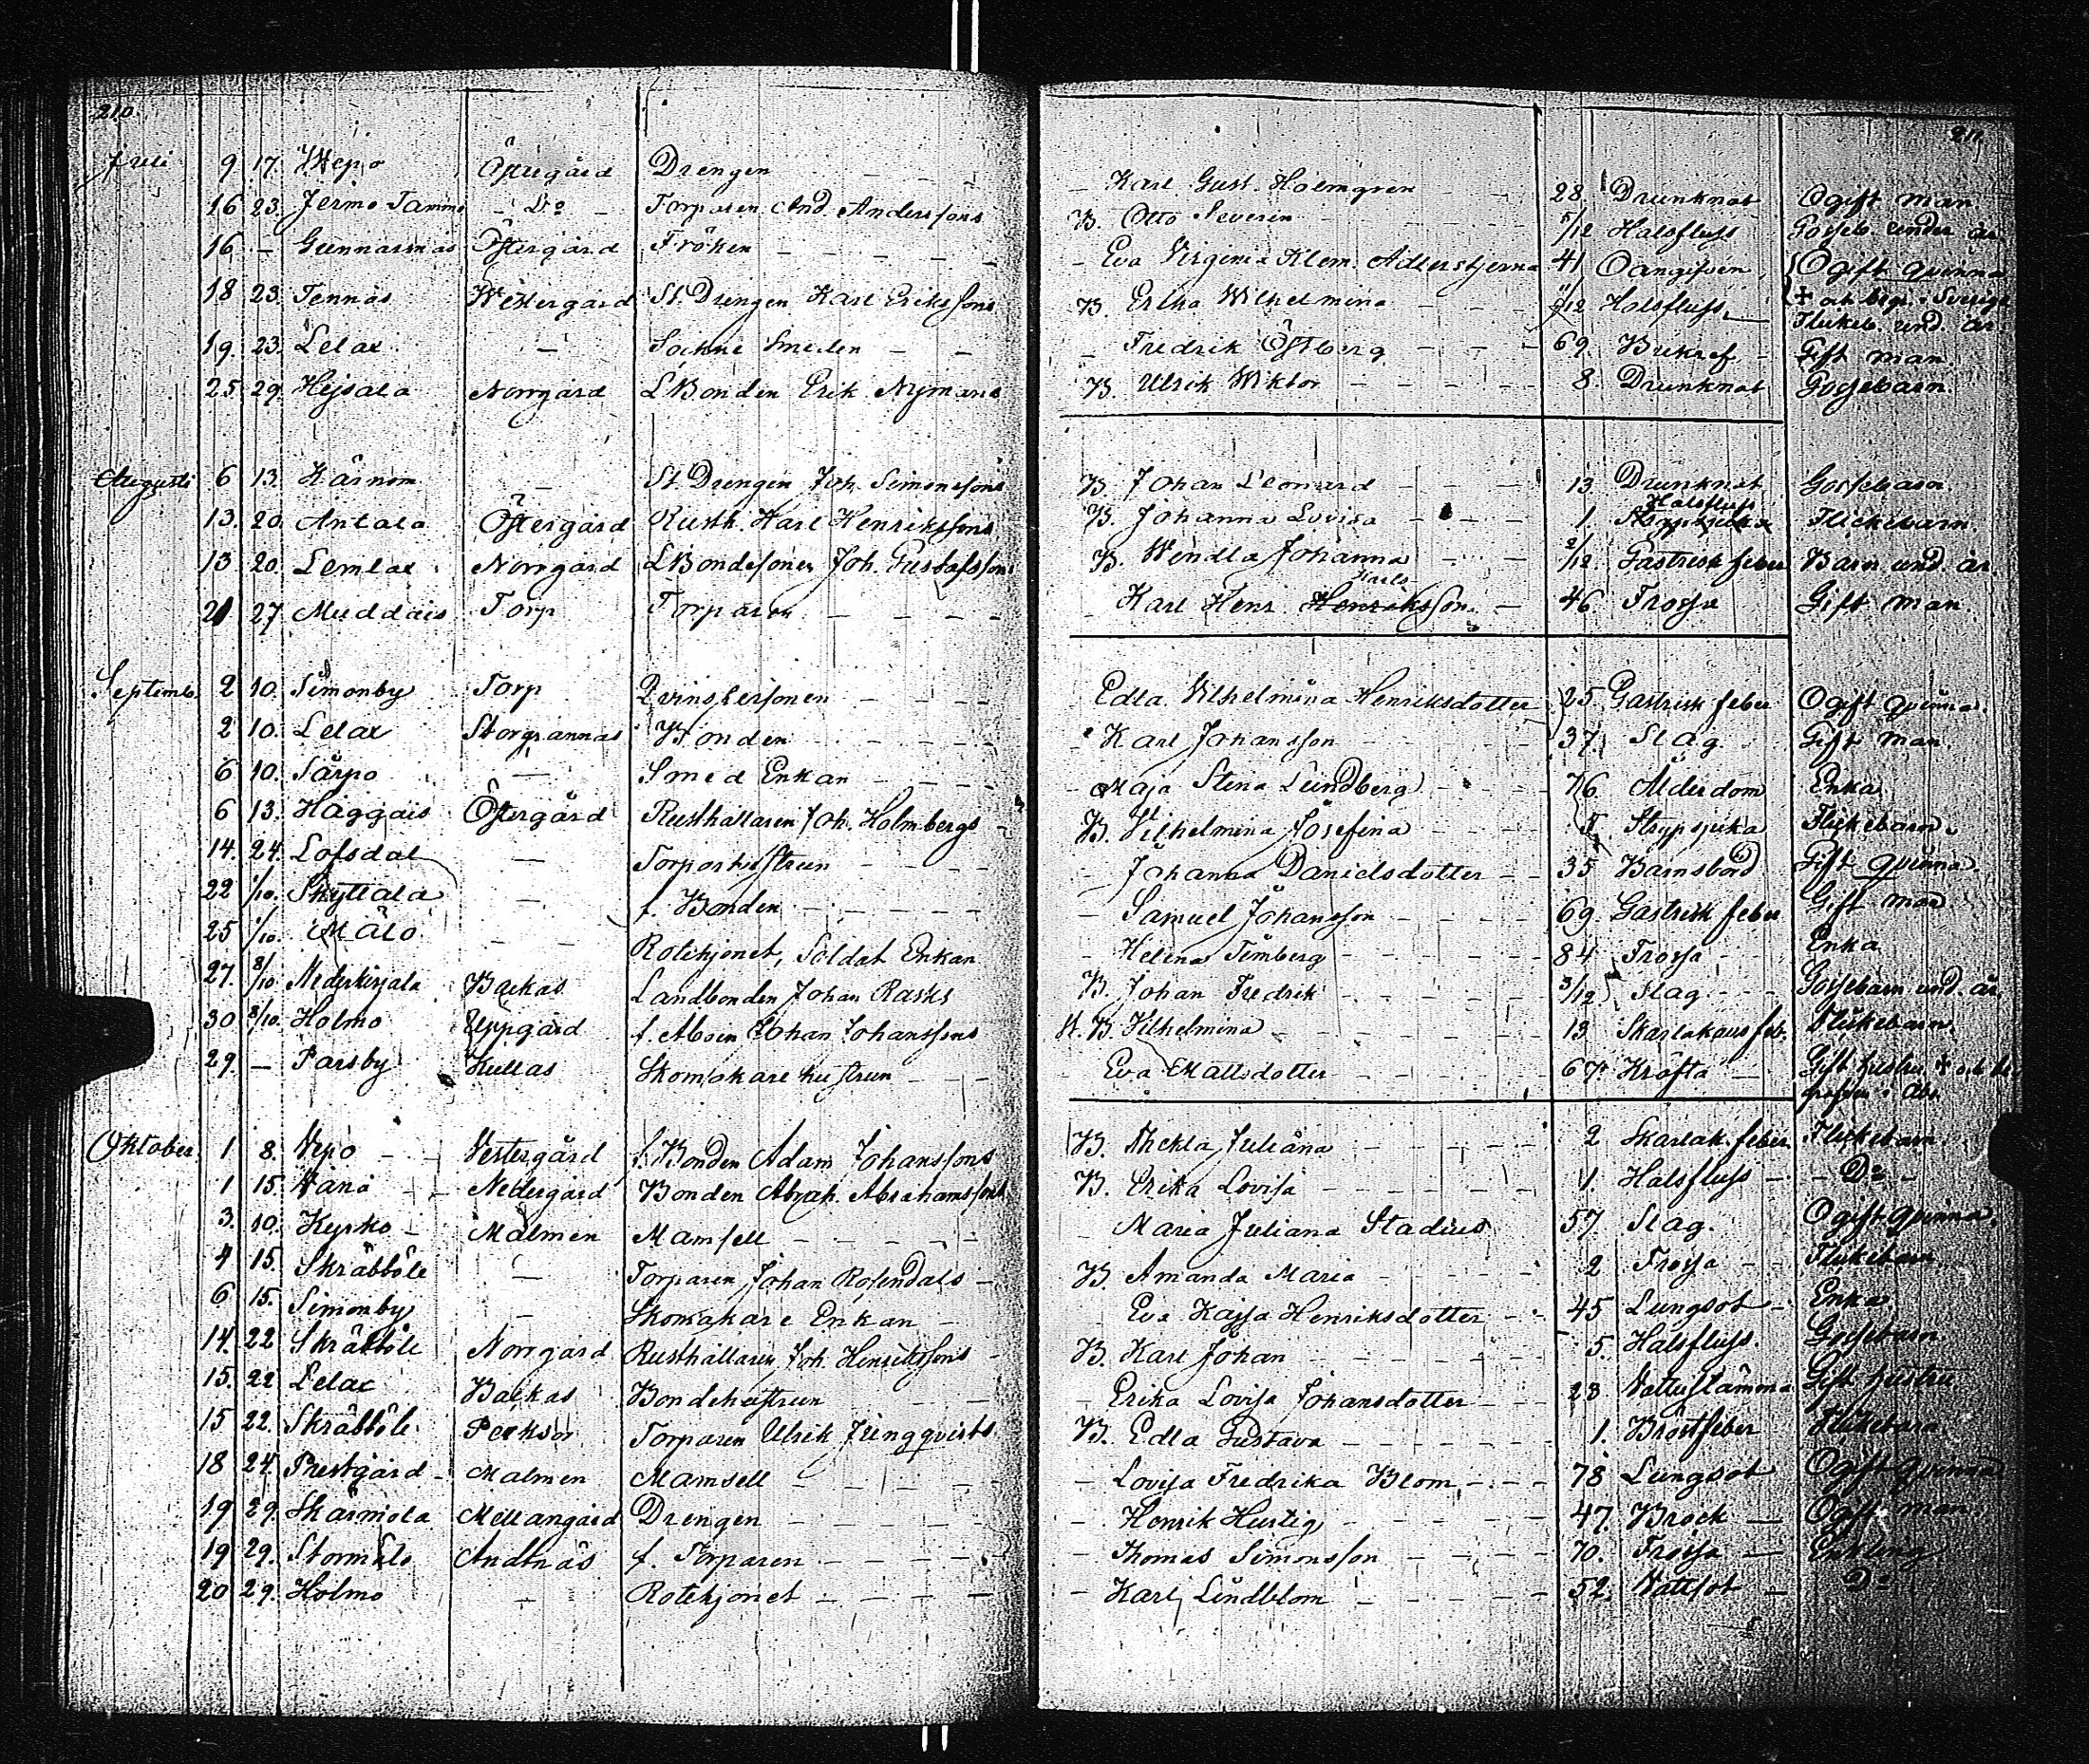 210.
211.
Juli 9 17. Wepo Östregård Drengen — Karl Gust. Holmgren 28. Drunknat Ogift man
16 23. Jermo Tammo Do Torparen And. Anderssons B. Otto Severin 5/12 Halsfluss Gosseb. under år.
16 — Gunnarsnäs Östergård Fröken — Eva Virginia Klem. Adlerstjerna 41 Oangifven Ogift qvinna
✝ och begr. i Sverige
18 23. Tennäs Westergård St. Drengen Karl Erikssons B. Erika Wilhelmina 11/12 Halsfluss Flickeb. und. år.
19. 23. Lelax — Sockne Smeden — Fredrik Östberg 69. Gift man
25 29. Hejsala Norrgård L.Bonden Erik Nymans B. Ulrik Wiktor 8. Drunknat Gossebarn.
Augusti 6 13. Kärnom — St. Drengen Joh. Simonssons B. Johan Leonard 13 Drunknat Gossebarn
13. 20. Antala Östergård Rusth. Karl Henrikssons B. Johanna Lovisa 1. Halsfluss Flickebarn.
13 20. Lemlax Norrgård L.Bondesonen Joh. Gustafssons B. Wendla Johanna 2/12 Gastrisk feber Barn und. år.
Karls
21 27 Muddais Torp Torparen — Karl Henr. Henriksson 46. Frossa Gift man.
Septemb. 2 10. Simonby Torp Qvinspersonen — Edla Vilhelmina Henriksdotter 25. Gastrisk feber Ogift qvinna.
2 10. Lelax Storgrannas Bonden — Karl Johansson 37 Slag Gift man.
6 10. Särpo — Smed Enkan — Maja Stina Lundberg 76 Ålderdom Enka
6 13. Haggais Östergård Rusthållaren Joh. Holmbergs B. Vilhelmina Josefina Strypsjuka Flickebarn.
14. 24. Lofsdal — Torparhustrun — Johanna Danielsdotter 35 Barnsbörd Gift qvinna.
22 1/10. Skyttala — f. Bonden — Samuel Johansson 69. Gastrisk feber Gift man
25 1/10. Målö — Rotehjonet, Soldat Enkan — Helena Timberg 84 Frossa Enka
27. 8/10 Nederkirjala Backas Landbonden Johan Rasks B. Johan Fredrik 3/12 Slag Gossebarn und. år.
30 8/10. Holmo Uppgård f. Åboen Johan Johanssons B. Vilhelmina 13 Skarlakans feb. Flickebarn.
29. — Parsby Kullas Skomakare hustrun — Eva Mattsdotter 67. Kräfta Gift hustru ✝ och be-
grafven i Åbo.
Oktober. 1 8. Vepo Vestergård f. Bonden Adam Johanssons B. Thekla Juliana 2 Skarlak. feber Flickebarn
1 15. Vånå Nedergård Bonden Abrah. Abrahamssons B. Erika Lovisa 1. Halsfluss Do
3. 10. Kyrko Malmen Mamsell — Maria Juliana Stadius 57. Slag. Ogift qvinna.
4 15. Skräbböle — Torparen Johan Rosendals B. Amanda Maria 2 Frossa Flickebarn.
6 15. Simonby — Skomakare Enkan — Eva Kajsa Henriksdotter 45 Lungsot Enka
14. 22 Skräbböle Norrgård Rusthållaren Joh. Henrikssons B. Karl Johan 5. Halsfluss. Gossebarn
15. 22 Lelax Backas Bondehustrun — Erika Lovisa Johansdotter 23 Gift hustru.
15 22. Skräbböle Torparen Ulrik Jungqvists B. Edla Gustava 1. Bröstfeber Flickebarn
18 24. Prestgård Malmen Mamsell — Lovisa Fredrika Blom 78 Lungsot Ogift qvinna
19 29. Skärmola Mellangård Drengen — Henrik Hurtig 47. Bråck Ogift man.
19 29. Stormälö Andtnäs f. Torparen — Thomas Simonsson 70. Frossa Enkling
20 29. Holmo — Rotehjonet — Karl Lindblom 52. Vattsot Do